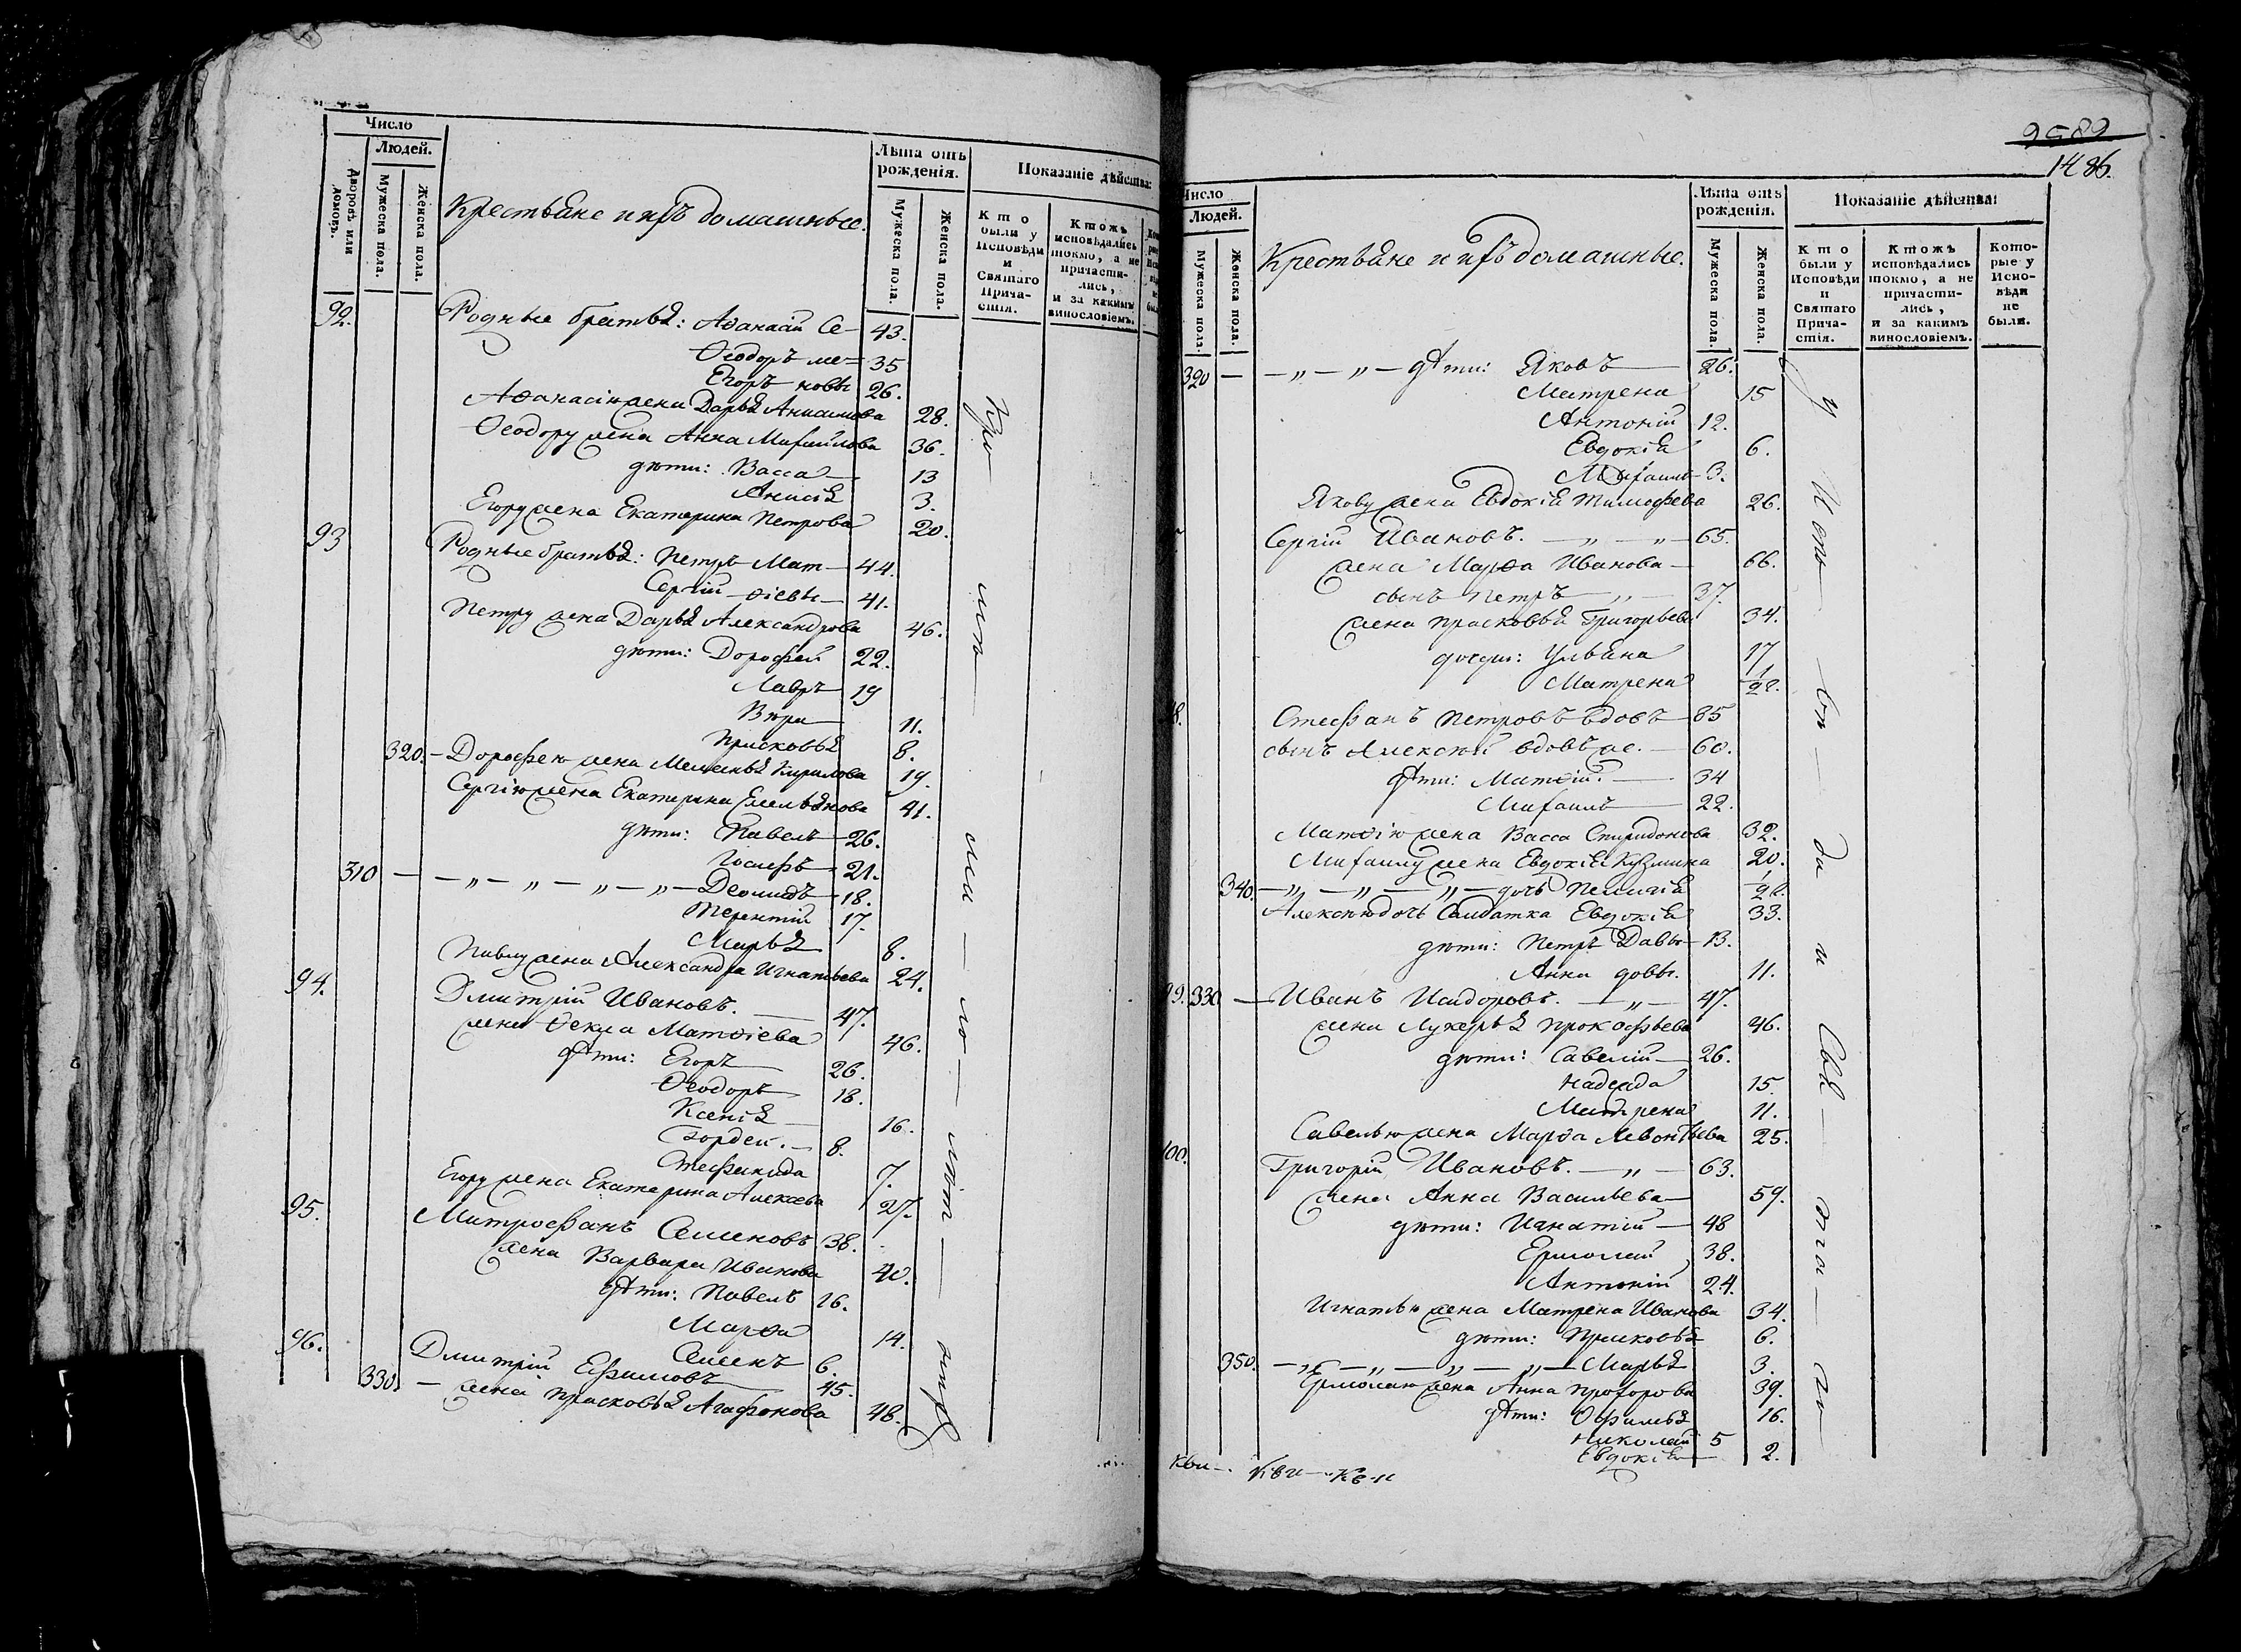 Число
Людей.
Дворовъ или домовъ.
Мужеска пола.
Женска пола.
Крестьяне и ихъ домашные.
Лѣта отъ рожденія.
Мужеска пола.
Женска пола.
Показаніе дѣйства:
Кто были у Исповѣди и Святаго Прича-стія.
Ктожъ исповѣдались токмо, а не причасти-лись, и за какимъ винословіемъ.
92. Родные братья: Аѳанасій Се- 43.
Ѳеодоръ ме- 35
Егоръ новы 26.
Аѳанасію жена Дарья Анисимова 28.
Ѳеодору жена Анна Михайлова 36.
дѣти: Васса 13
Анисія 3.
Егору жена Екатерина Петрова 20.
93 Родные братья: Петръ Мат- 44.
Сергій -ѳіевы- 41.
Петру жена Дарья Александрова 46.
дѣти: Дорофей 22.
Лавръ 19
Вѣра 11.
Прасковья 8.
320. - Дорофею жена Меланья Кирилова 19.
Сергію жена Екатерина Емельянова 41.
дѣти: Павелъ 26.
Іосифъ 21.
310 — — „ — „ — „ — „ — Деомидъ 18.
Терентій 17.
Марья 8.
Павлу жена Александра Игнатьева 24.
94. Дмитрій Ивановъ. 47.
жена Ѳекла Матѳіева 46.
дѣти: Егоръ 26.
Ѳеодоръ 18.
Ксенія 16.
Гордей. 8.
Стефанида 7.
Егору жена Екатерина Алексеева 27.
95. Митрофанъ Семеновъ 38.
жена Варвара Иванова 40.
дѣти: Павелъ 16.
Марѳа 14.
Семенъ 6.
96. Дмитрій Ефимовъ 45.
330. - жена Прасковья Агафонова 48.
9589
1486.
Число
Людей.
Мужеска пола.
Женска пола.
Крестьяне и ихъ домашные.
Лѣта отъ рожденія.
Мужеска пола.
Женска пола.
Показаніе дѣйства:
Кто были у Исповѣди и Святаго Прича-стія.
Ктожъ исповѣдались токмо, а не причасти-лись, и за какимъ винословіемъ.
Кото-рые у Испо-вѣди не были.
320 — — „ — „ — дѣти: Яковъ 26.
Матрена 15
Антоній 12.
Евдокія 6.
Михаилъ 3.
Якову жена Евдокія Тимофеева 26.
Сергій Ивановъ. — „ — „ — 65.
жена Марѳа Иванова 66.
сынъ Петръ — „ — 37.
жена Прасковья Григорьева 34.
дочери: Ульяна 17
Матрена 1/2 г.
Стефанъ Петровъ вдовъ 85
сынъ Алексѣй вдовъ же. 60.
дѣти: Матѳій. 34
Михаилъ 22.
Матѳію жена Васса Спиридонова 32.
Михаилу жена Евдокія Кузмина 20.
340. — „ — „ — „ — дочь Пелагія 1/2 г.
Алексѣю дочь Салдатка Евдокія 33.
дѣти: Петръ Давы- 13.
Анна довы. 11.
99. 330 — Иванъ Исидоровъ. — „ — 47.
жена Лукерья Прокофьева 46.
дѣти: Савелій 26.
Надежда 15
Матрена 11.
Савелью жена Марѳа Левонтьева 25.
100. Григорій Ивановъ. — „ — 63.
жена Анна Васильева 59.
дѣти: Игнатій 48
Ермолай 38.
Антоній 24.
Игнатью жена Матрена Иванова 34.
дѣти: Прасковья 6.
350. — „ — „ — „ — „ — Марья 3.
Ермолаю жена Анна Прохорова 39.
дѣти: Офимья 16.
Николай 5
Евдокія 2.